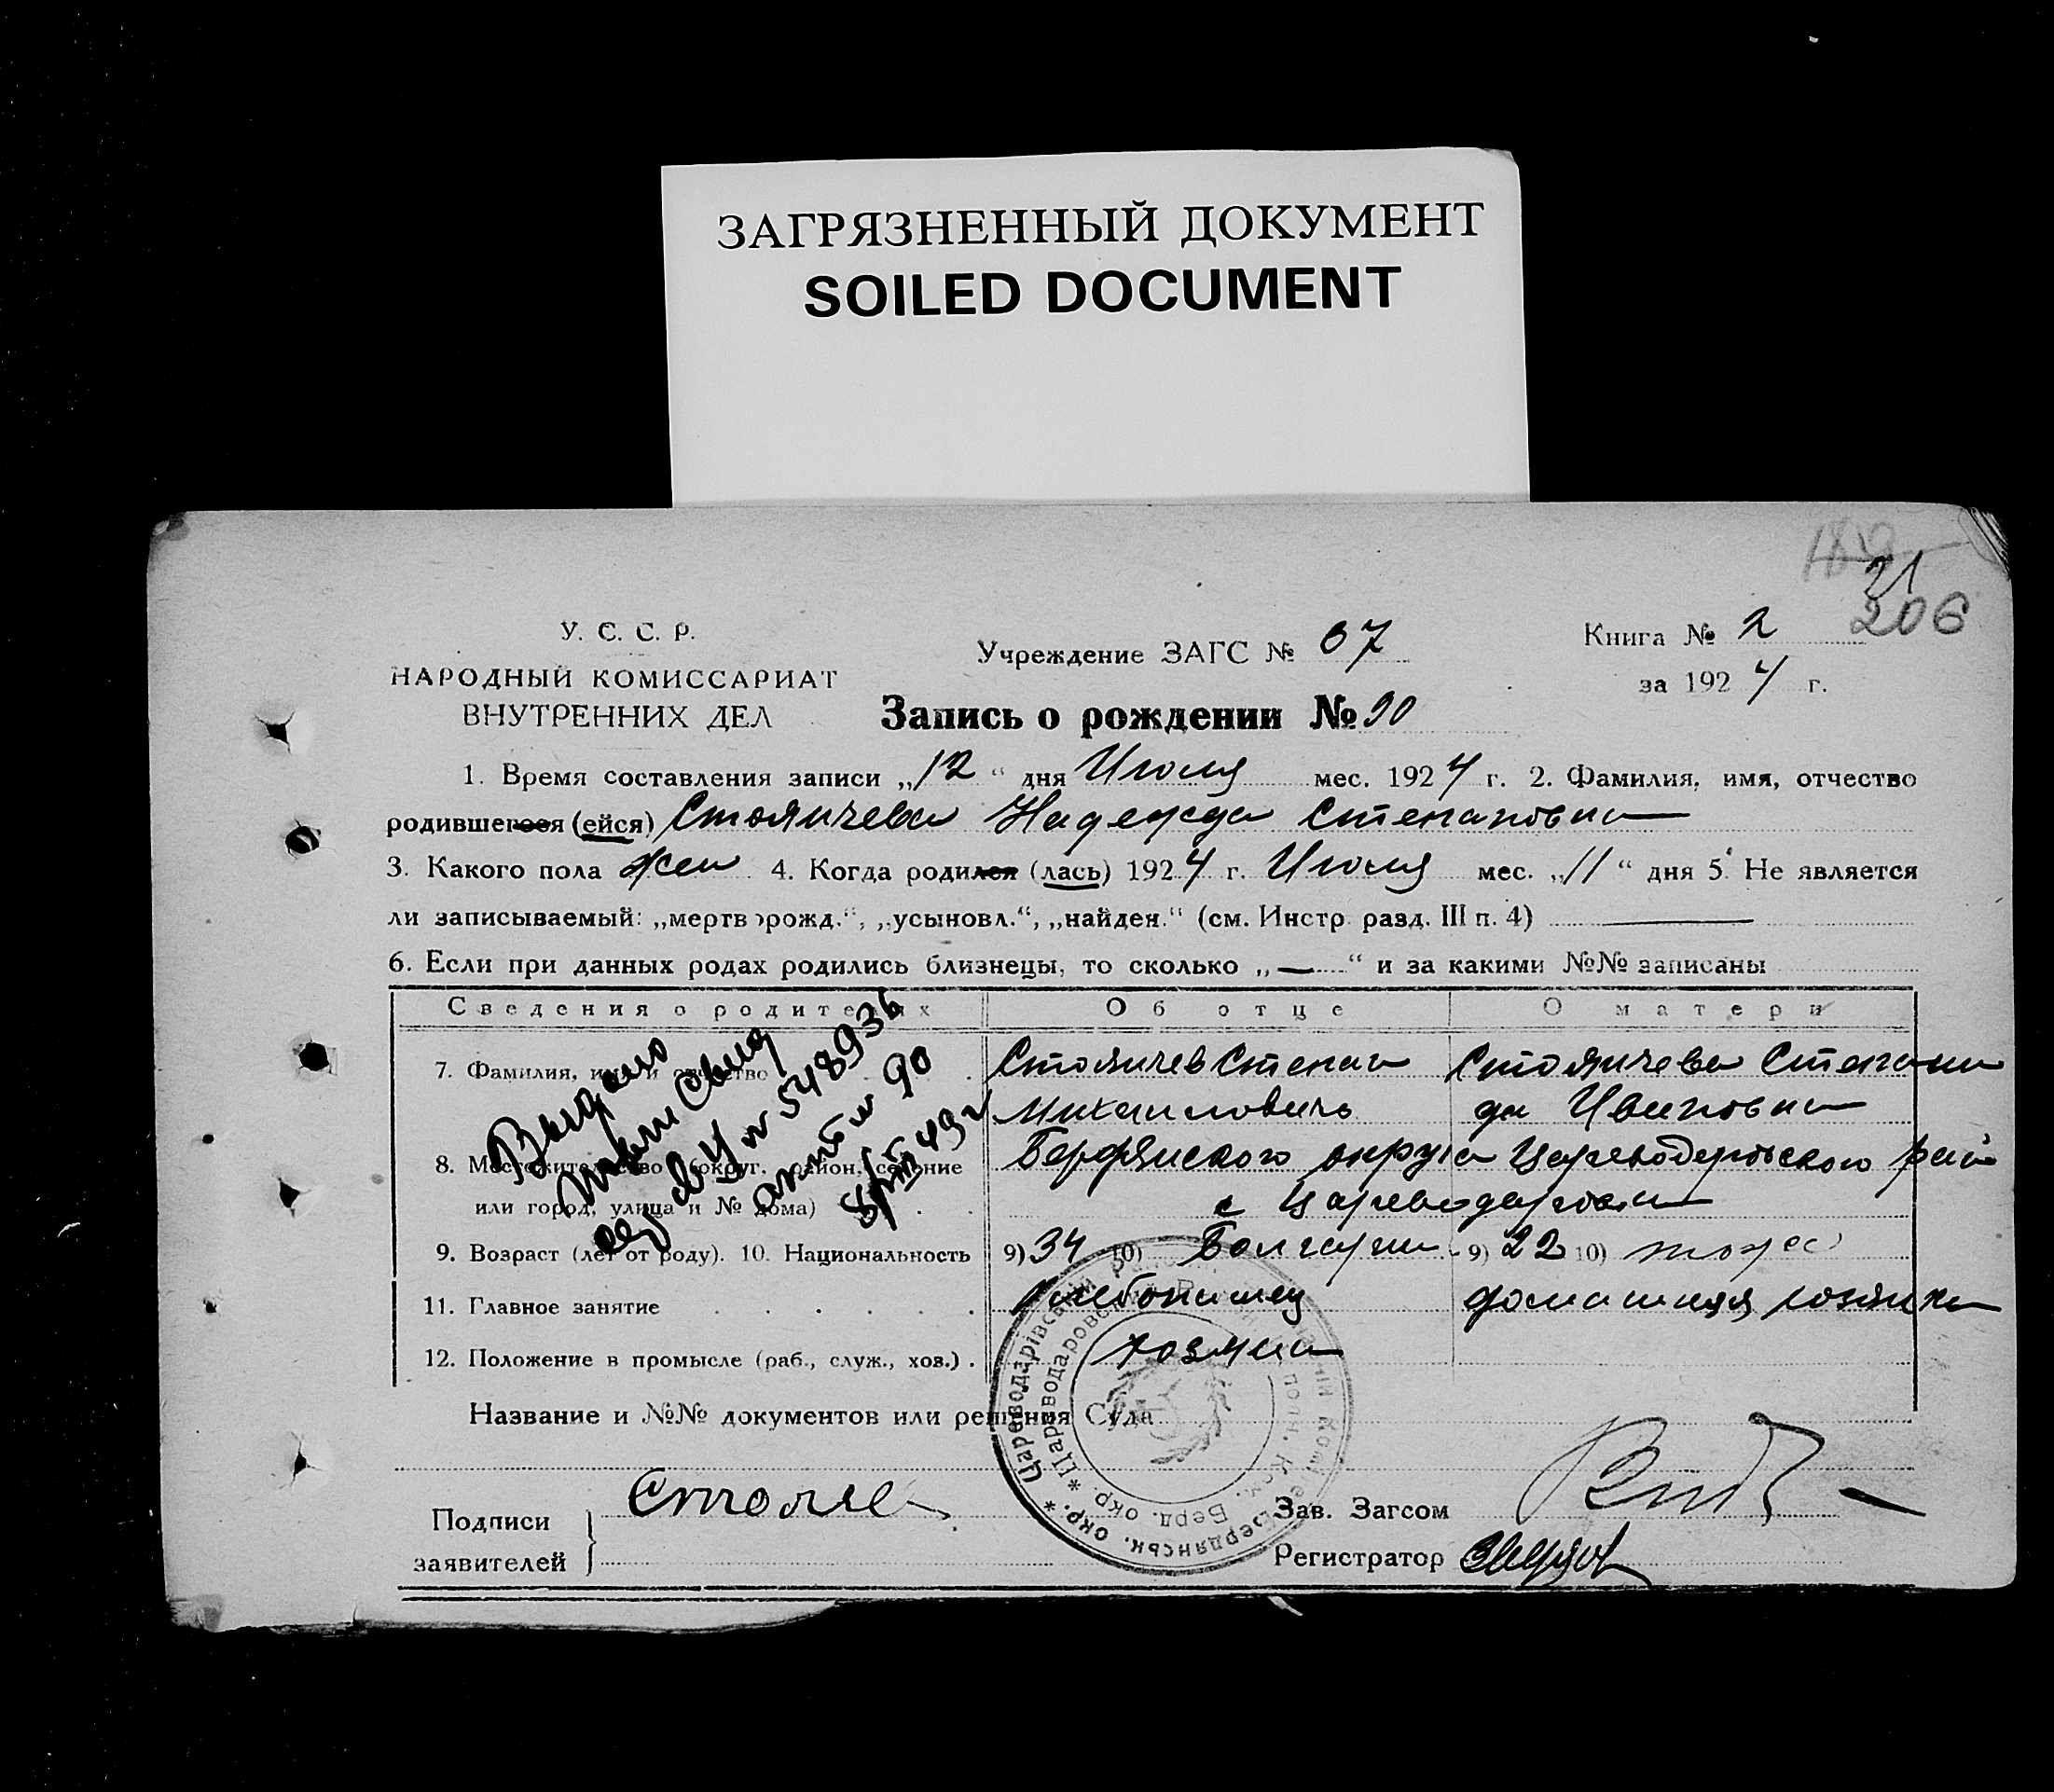 ЗАГРЯЗНЕННЫЙ ДОКУМЕНТ
SOILED DOCUMENT
206
У. С. С. Р.
НАРОДНЫЙ КОМИССАРИАТ
ВНУТРЕННИХ ДЕЛ
Учреждение ЗАГС № 67
Книга № 2
за 1924 г.
Запись о рождении № 90
1. Время составления записи „12“ дня Июля мес. 1924 г. 2. Фамилия, имя, отчество
родившегося (ейся) Стояничева Надежда Степановна
3. Какого пола жен 4. Когда родился (лась) 1924 г. Июля мес. „11“ дня 5. Не является
ли записываемый: „мертворожд.“, „усыновл.“, „найден.“ (см. Инстр. разд. III п. 4) —
6. Если при данных родах родились близнецы, то сколько „—“ и за какими №№ записаны
Сведения о родителях Об отце О матери
7. Фамилия, имя и отчество Стояничев Степан Стояничева Степани
Михайлович да Ивановна
8. Местожительство (округ, район, селение Бердянского округа Цареводаровского рай
или город, улица и № дома) с Цареводаровка
9. Возраст (лет от роду). 10. Национальность 9) 34 10) Болгарин 9) 22 10) тоже
11. Главное занятие Хлебопашец домашняя хозяйка
12. Положение в промысле (раб., служ., хоз.) . хозяин
Выдано
повт Свид
№ 548936
90
49 г
Название и №№ документов или решения Суда
Цареводарівськ
Цареводаров
Бердянськ. окр.
Берд. окр.
Подписи
заявителей
Стояни
Зав. Загсом
Регистратор